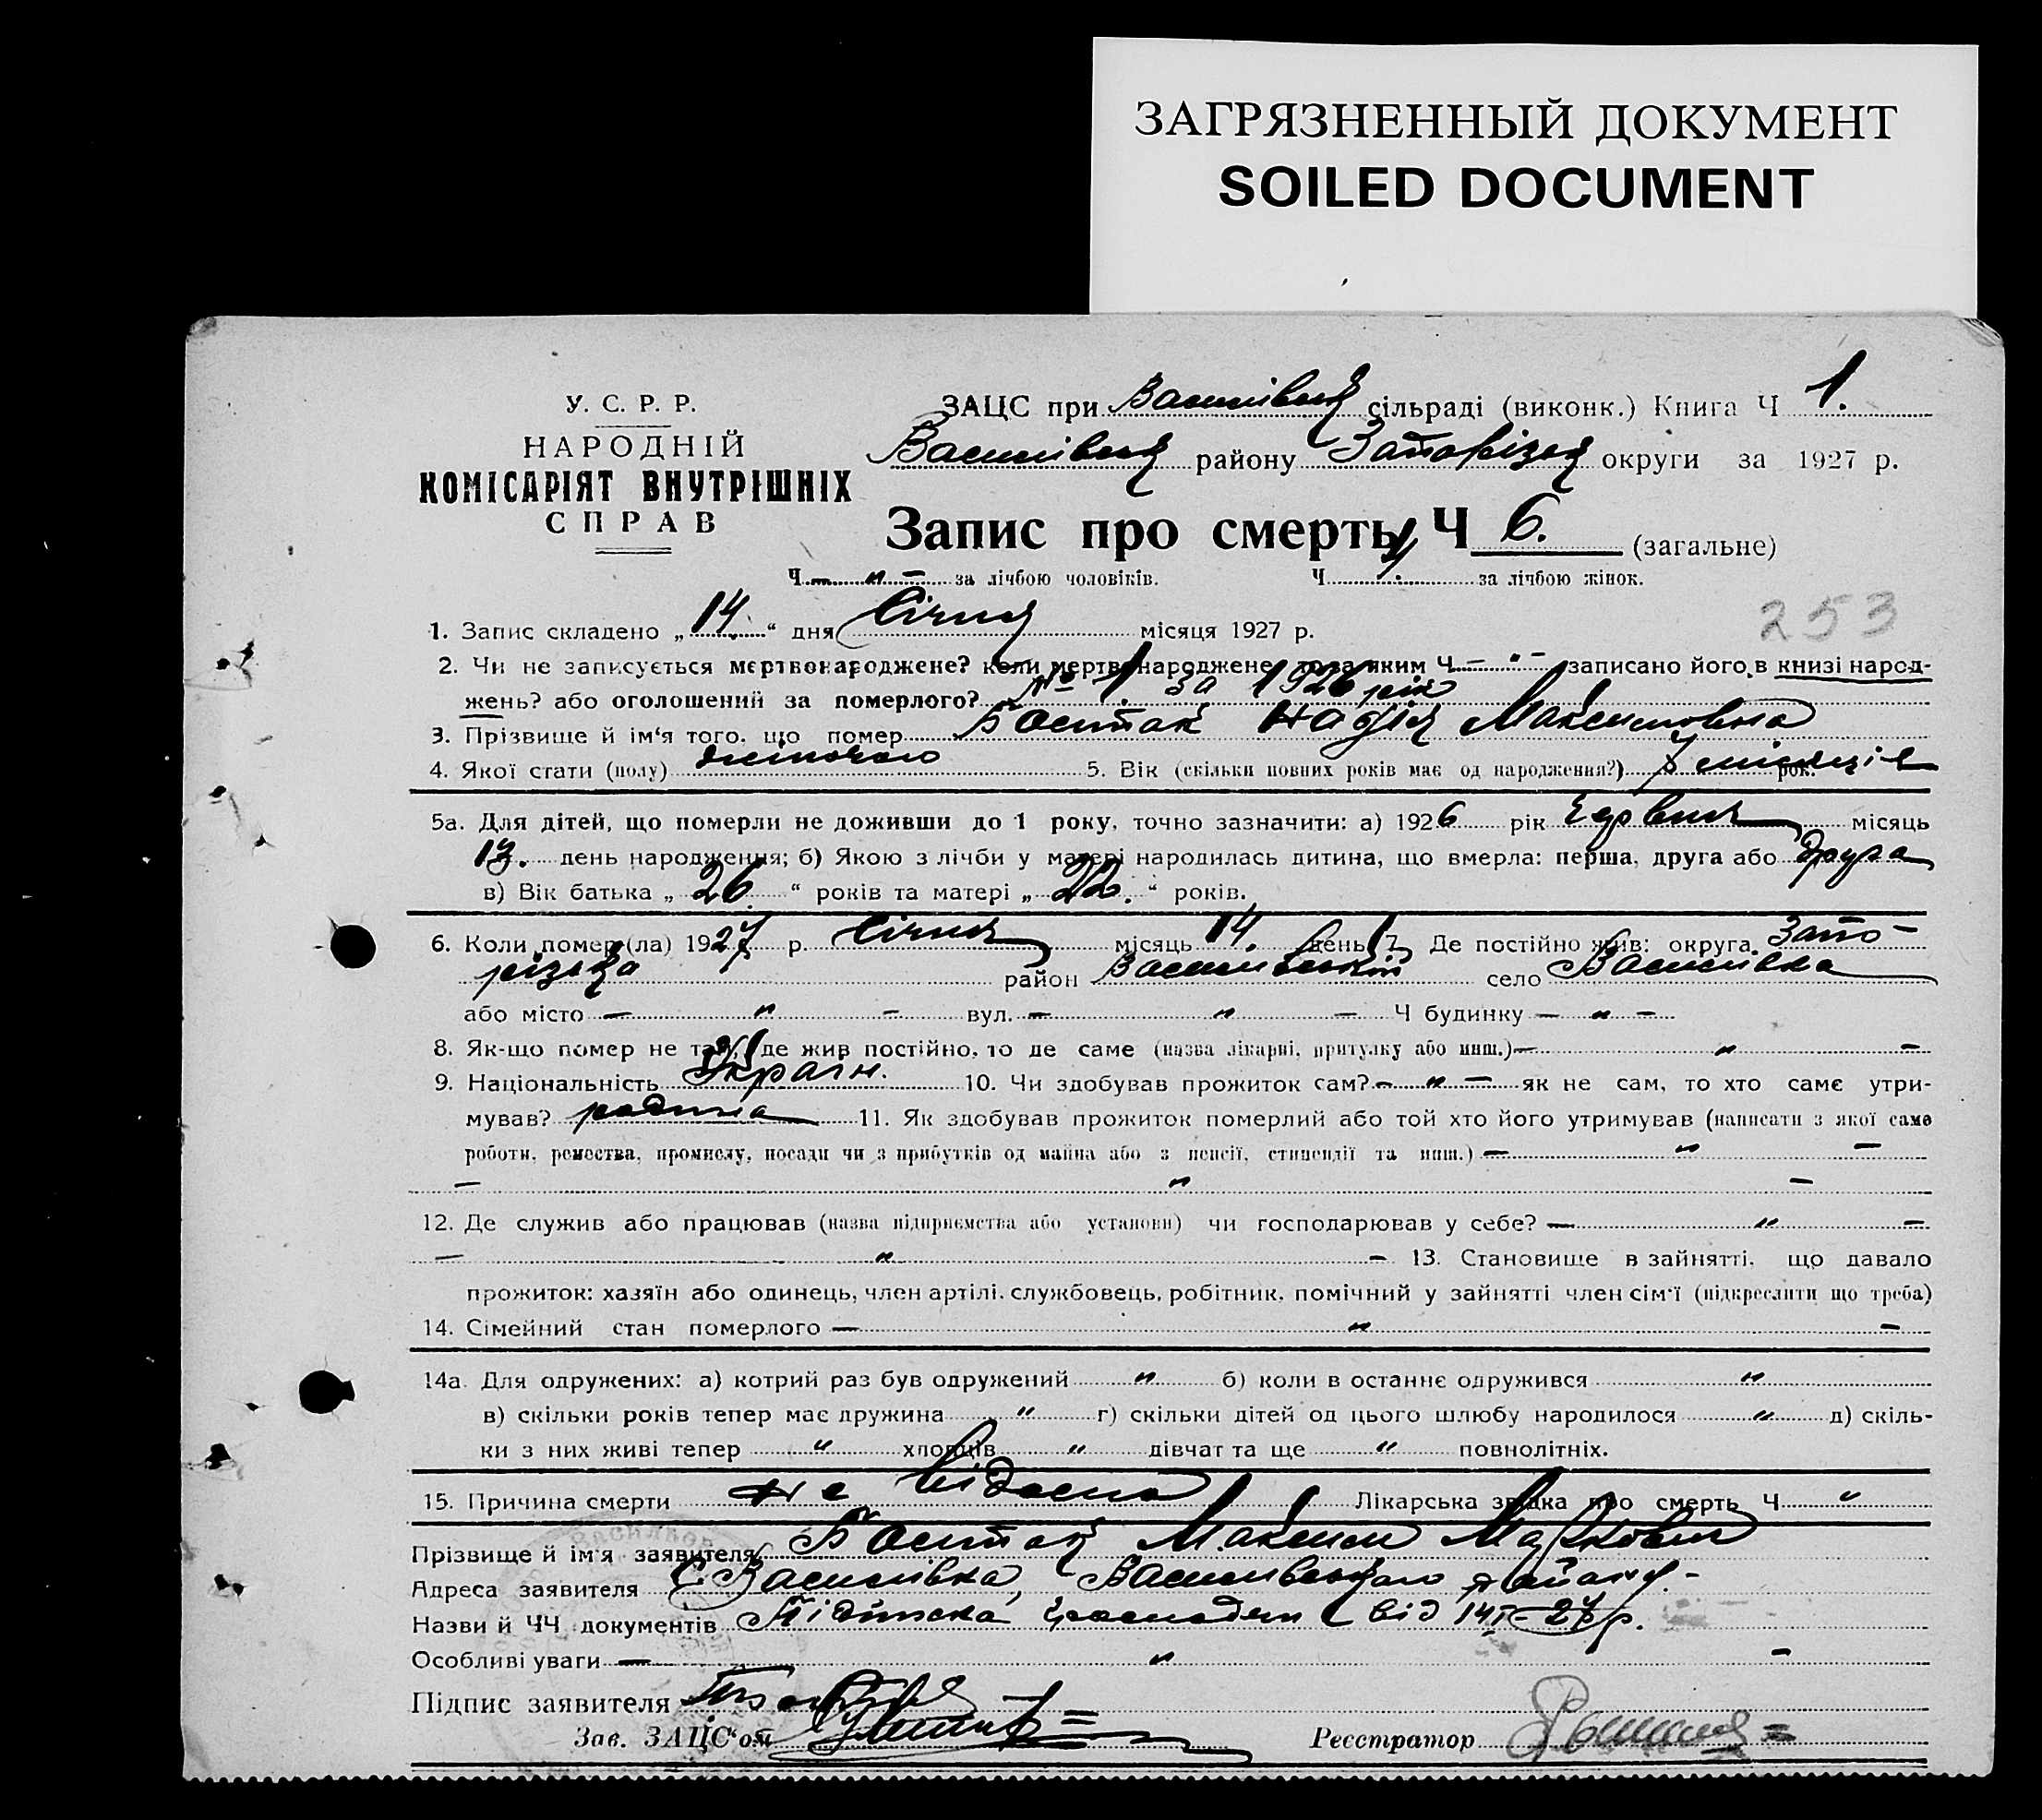 ЗАГРЯЗНЕННЫЙ ДОКУМЕНТ
SOILED DOCUMENT
У. С. Р. Р.
НАРОДНІЙ
КОМІСАРІЯТ ВНУТРІШНІХ
СПРАВ
ЗАЦС при Василівськ сільраді (виконк.) Книга Ч 1.
Василівськ району Запорізьк округи за 1927 р.
Запис про смерть Ч 6. (загальне)
Ч — „ — за лічбою чоловіків. Ч 4. за лічбою жінок.
253
1. Запис складено „14.“ дня Січня місяця 1927 р.
2. Чи не записується мертвонароджене? коли мертвонароджене, то за яким Ч — „ — записано його в книзі народ-
жень? або оголошений за померлого? № 1 за 1926 рік
3. Прізвище й ім'я того, що помер Бостак Надія Максимовна
4. Якої стати (полу) жіночою 5. Вік (скільки повних років має од народження?) 7 місяців рок.
5а. Для дітей, що померли не доживши до 1 року, точно зазначити: а) 1926 рік Червня місяць
13. день народження; б) Якою з лічби у матері народилась дитина, що вмерла: перша, друга або друга
в) Вік батька „26“ років та матері „22.“ років.
6. Коли помер (ла) 1927 р. Січня місяць 14. день 7. Де постійно жив: округа Запо-
різька район Василівський село Василівка
або місто — „ — вул. — „ — Ч будинку — „ —
8. Як-що помер не там, де жив постійно, то де саме (назва лікарні, притулку або инш.) — „ —
9. Національність Україн. 10. Чи здобував прожиток сам? — „ — як не сам, то хто саме утри-
мував? родина 11. Як здобував прожиток померлий або той хто його утримував (написати з якої саме
роботи, ремества, промислу, посади чи з прибутків од майна або з пенсії, стипендії та инш.) — „ —
— „ —
12. Де служив або працював (назва підприємства або установи) чи господарював у себе? — „ —
— „ — 13. Становище в зайнятті, що давало
прожиток: хазяїн або одинець, член артілі, службовець, робітник, помічний у зайнятті член сім'ї (підкреслити що треба)
14. Сімейний стан померлого — „ —
14а. Для одружених: а) котрий раз був одружений „ б) коли в останнє одружився „
в) скільки років тепер має дружина „ г) скільки дітей од цього шлюбу народилося „ д) скіль-
ки з них живі тепер „ хлопців „ дівчат та ще „ повнолітніх.
15. Причина смерти не відома Лікарська звідка про смерть Ч „
Прізвище й ім'я заявителя Бостак Максим Маркович
Адреса заявителя С. Василівка, Василівського району.
Назви й ЧЧ документів від 14/I-27 р.
Особливі уваги — „ —
Підпис заявителя
Зав. ЗАЦС'ом Реєстратор